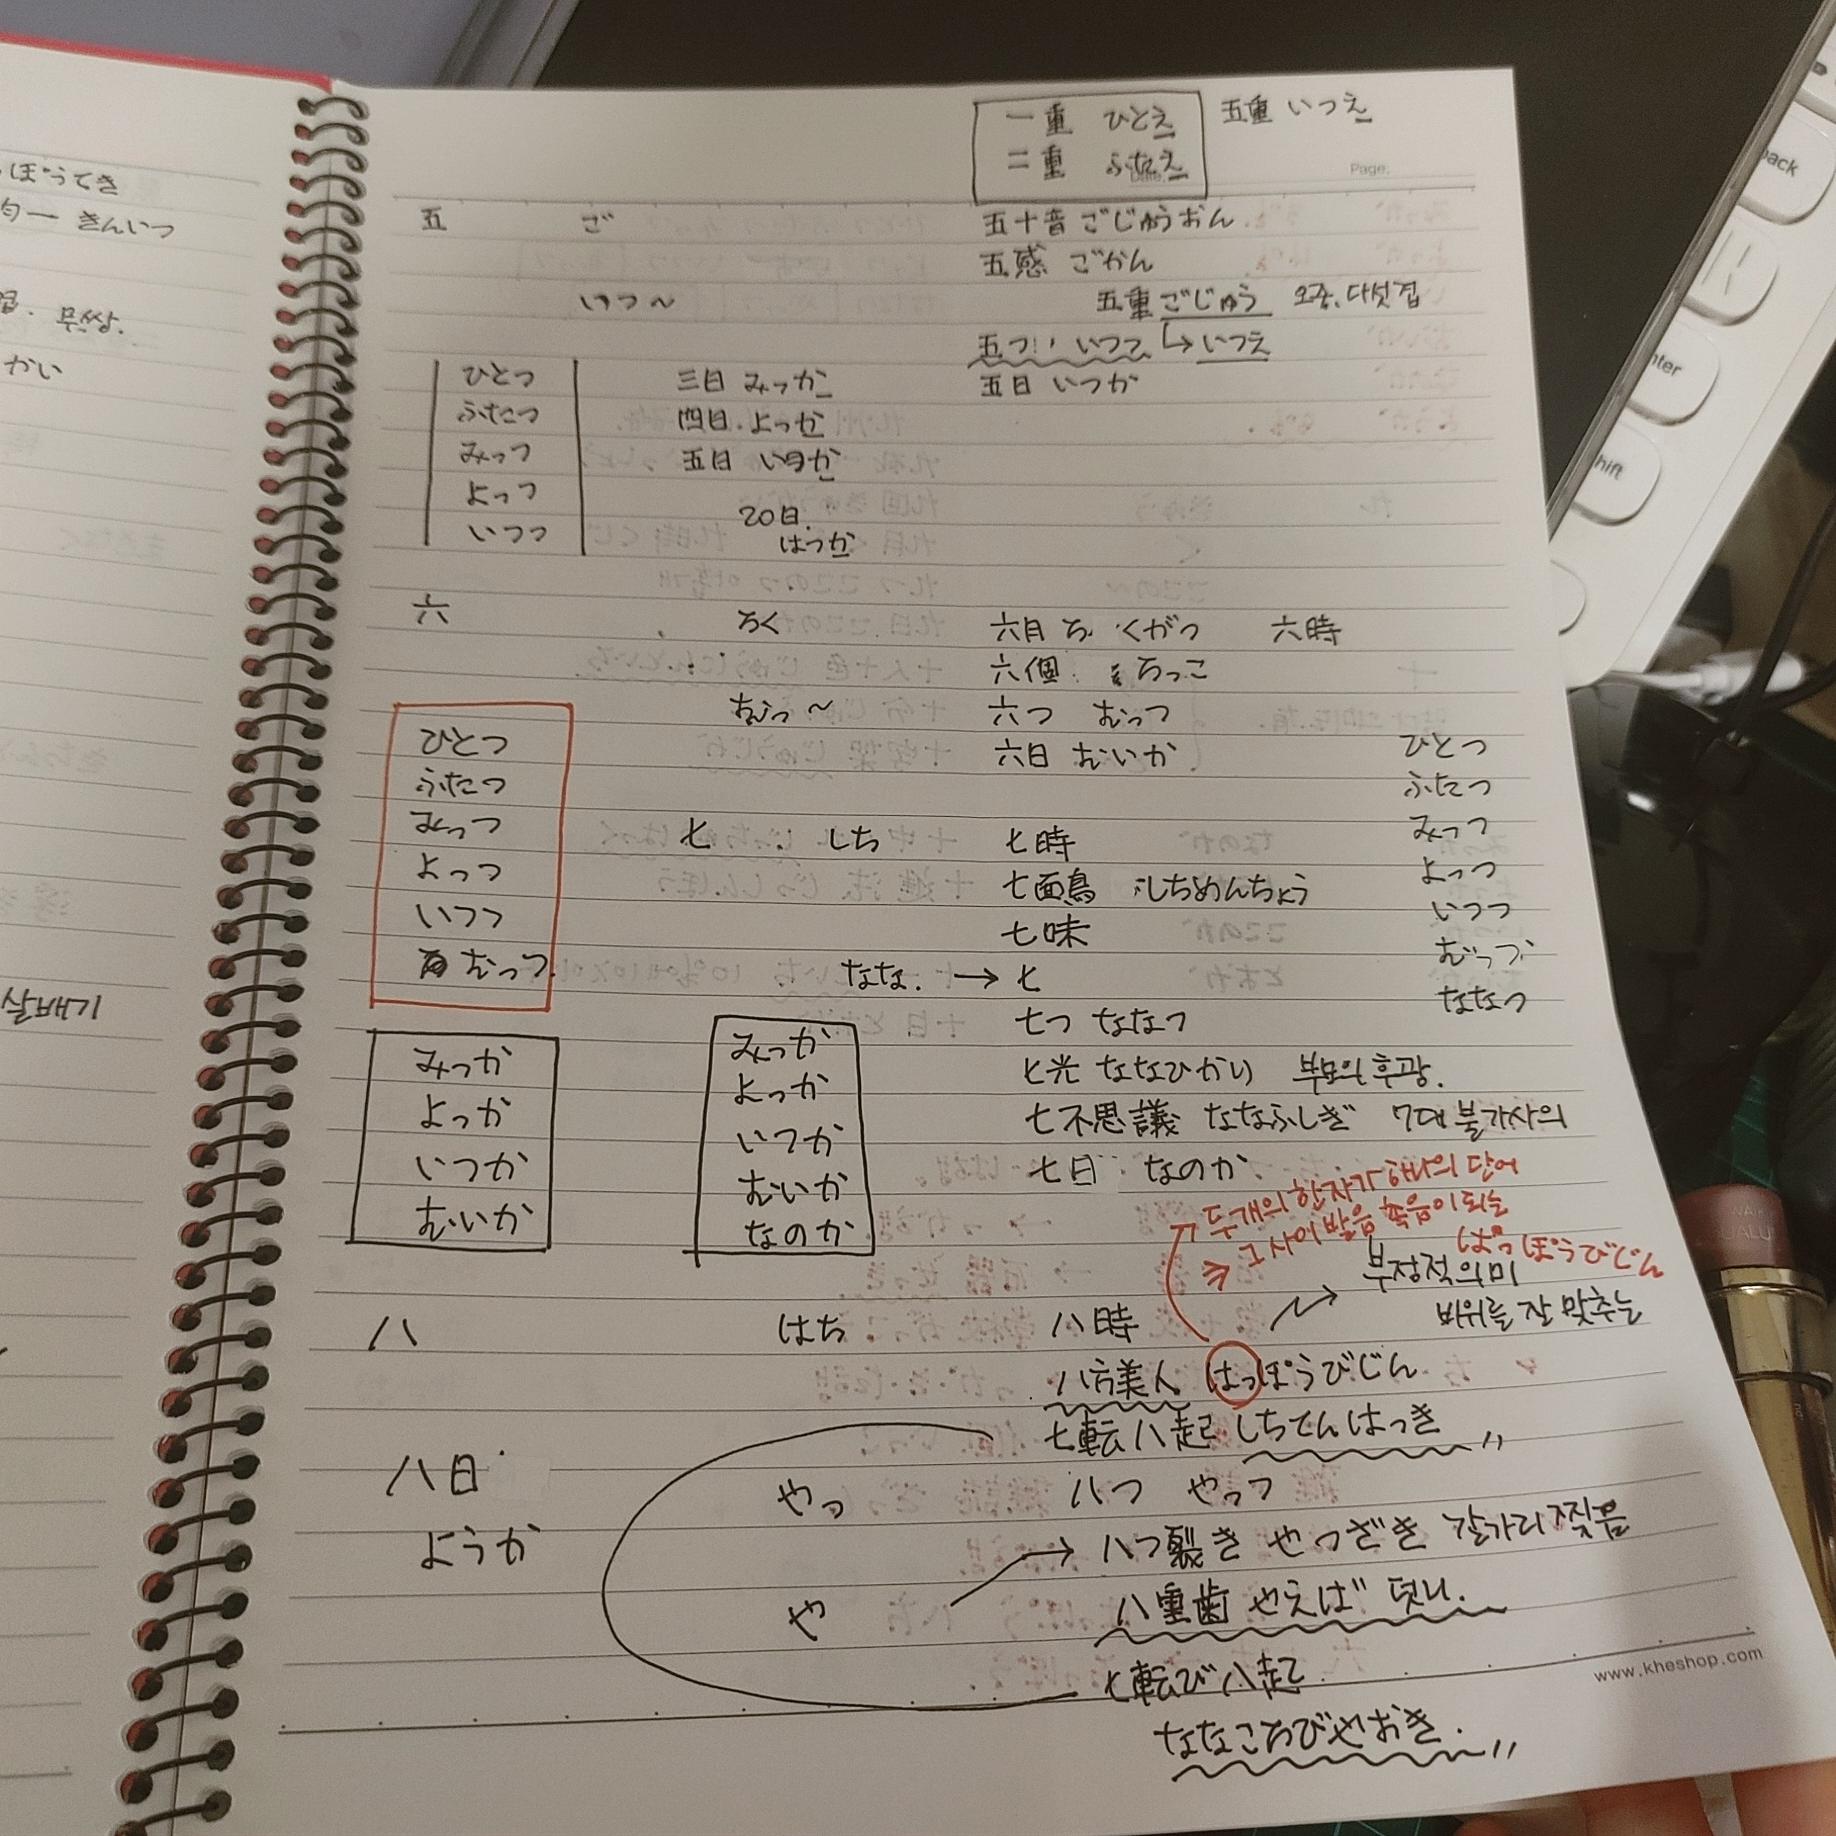 ぽうてき
一 きんいつ
무쌍.
かい
살배기
一重 ひとえ
二重 ふたえ
五重 いつえ
Page:
五 ご 五十音 ごじゅうおん
五感 ごかん
いつ～ 五重 ごじゅう 오중. 다섯겹
五つ いつつ → いつえ
五日 いつか
ひとつ
ふたつ
みっつ
よっつ
いつつ
三日 みっか
四日 よっか
五日 いつか
20日.
はつか
六 ろく 六月 ろくがつ 六時
六個 ろっこ
むっ～ 六つ むっつ
六日 むいか
ひとつ
ふたつ
みっつ
よっつ
いつつ
むっつ
ひとつ
ふたつ
みっつ
よっつ
いつつ
むっつ
ななつ
七 しち 七時
七面鳥 しちめんちょう
七味
なな. → 七
七つ ななつ
七光 ななひかり 부모의 후광.
七不思議 ななふしぎ 7대 불가사의
七日 なのか
みっか
よっか
いつか
むいか
みっか
よっか
いつか
むいか
なのか
두개의 한자가 하나의 단어
그 사이 발음 촉음이 되는
はっぽうびじん
부정적 의미
비위를 잘 맞추는
八 はち 八時
八方美人 はっぽうびじん
七転八起 しちてんはっき
八日
ようか
やっ 八つ やっつ
→ 八つ裂き やつざき 갈가리 찢음
や 八重歯 やえば 덧니.
七転び八起
ななころびやおき.
www.kheshop.com
back
enter
shift